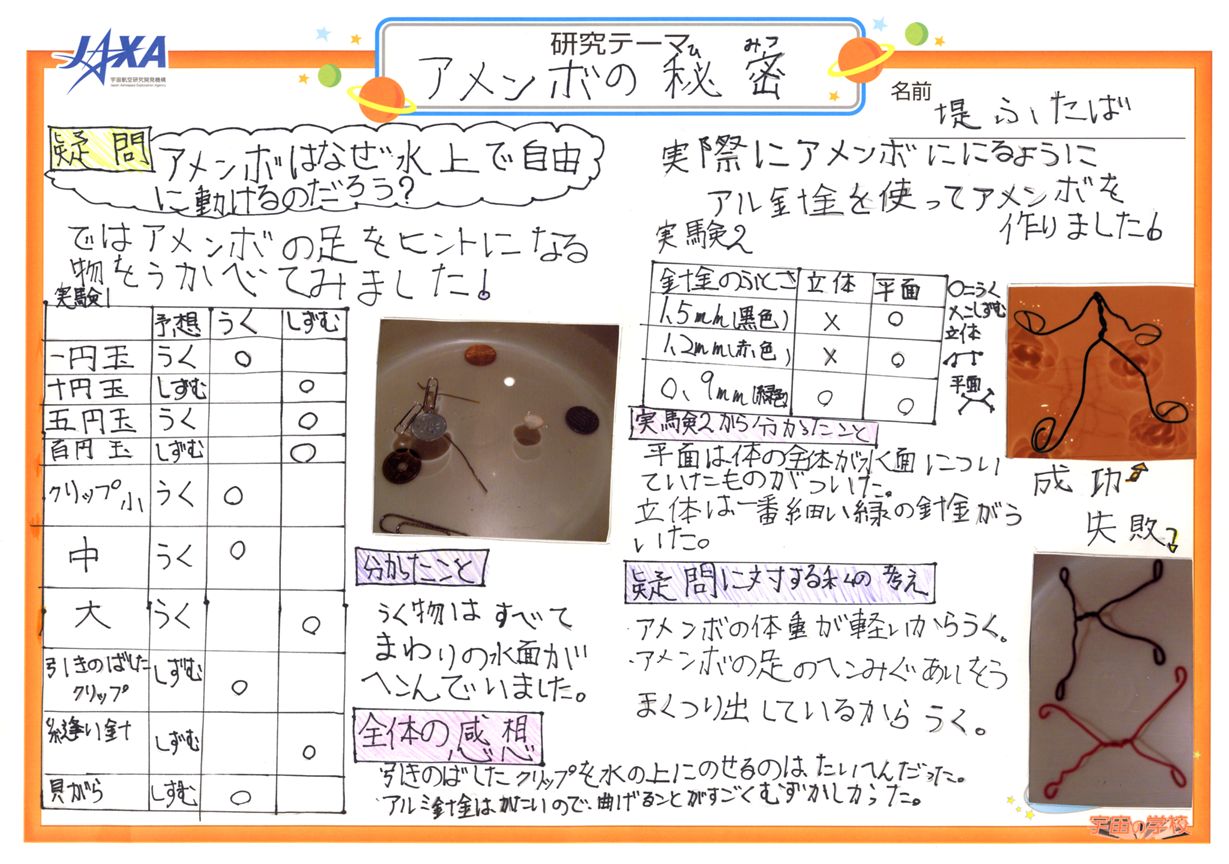 JAXA
宇宙航空研究開発機構
Japan Aerospace Exploration Agency
研究テーマ
ひ みつ
アメンボの秘密
名前
堤 ふたば
疑問
アメンボはなぜ水上で自由
に動けるのだろう?
ではアメンボの足をヒントになる
物をうかべてみました!
実験1
予想 うく しずむ
一円玉 うく ○
十円玉 しずむ ○
五円玉 うく ○
百円玉 しずむ ○
クリップ小 うく ○
中 うく ○
大 うく ○
引きのばした
クリップ しずむ ○
糸縫い針 しずむ ○
貝がら しずむ ○
分かったこと
うく物はすべて
まわりの水面が
へこんでいました。
全体の感想
引きのばしたクリップを水の上にのせるのはたいへんだった。
アルミ針金はかたいので、曲げることがすごくむずかしかった。
実際にアメンボににるように
アルミ針金を使ってアメンボを
作りました。
実験2
針金のふとさ 立体 平面
1.5mm(黒色) × ○
1.2mm(赤色) × ○
0.9mm(緑色) ○ ○
○=うく
×=しずむ
立体
平面
実験2から分かったこと
平面は体の全体が水面につい
ていたものがういた。
立体は一番細い緑の針金がう
いた。
疑問に対する私の考え
・アメンボの体重が軽いからうく。
・アメンボの足のへこみぐあいをう
まくつり出しているからうく。
成功
失敗
宇宙の学校